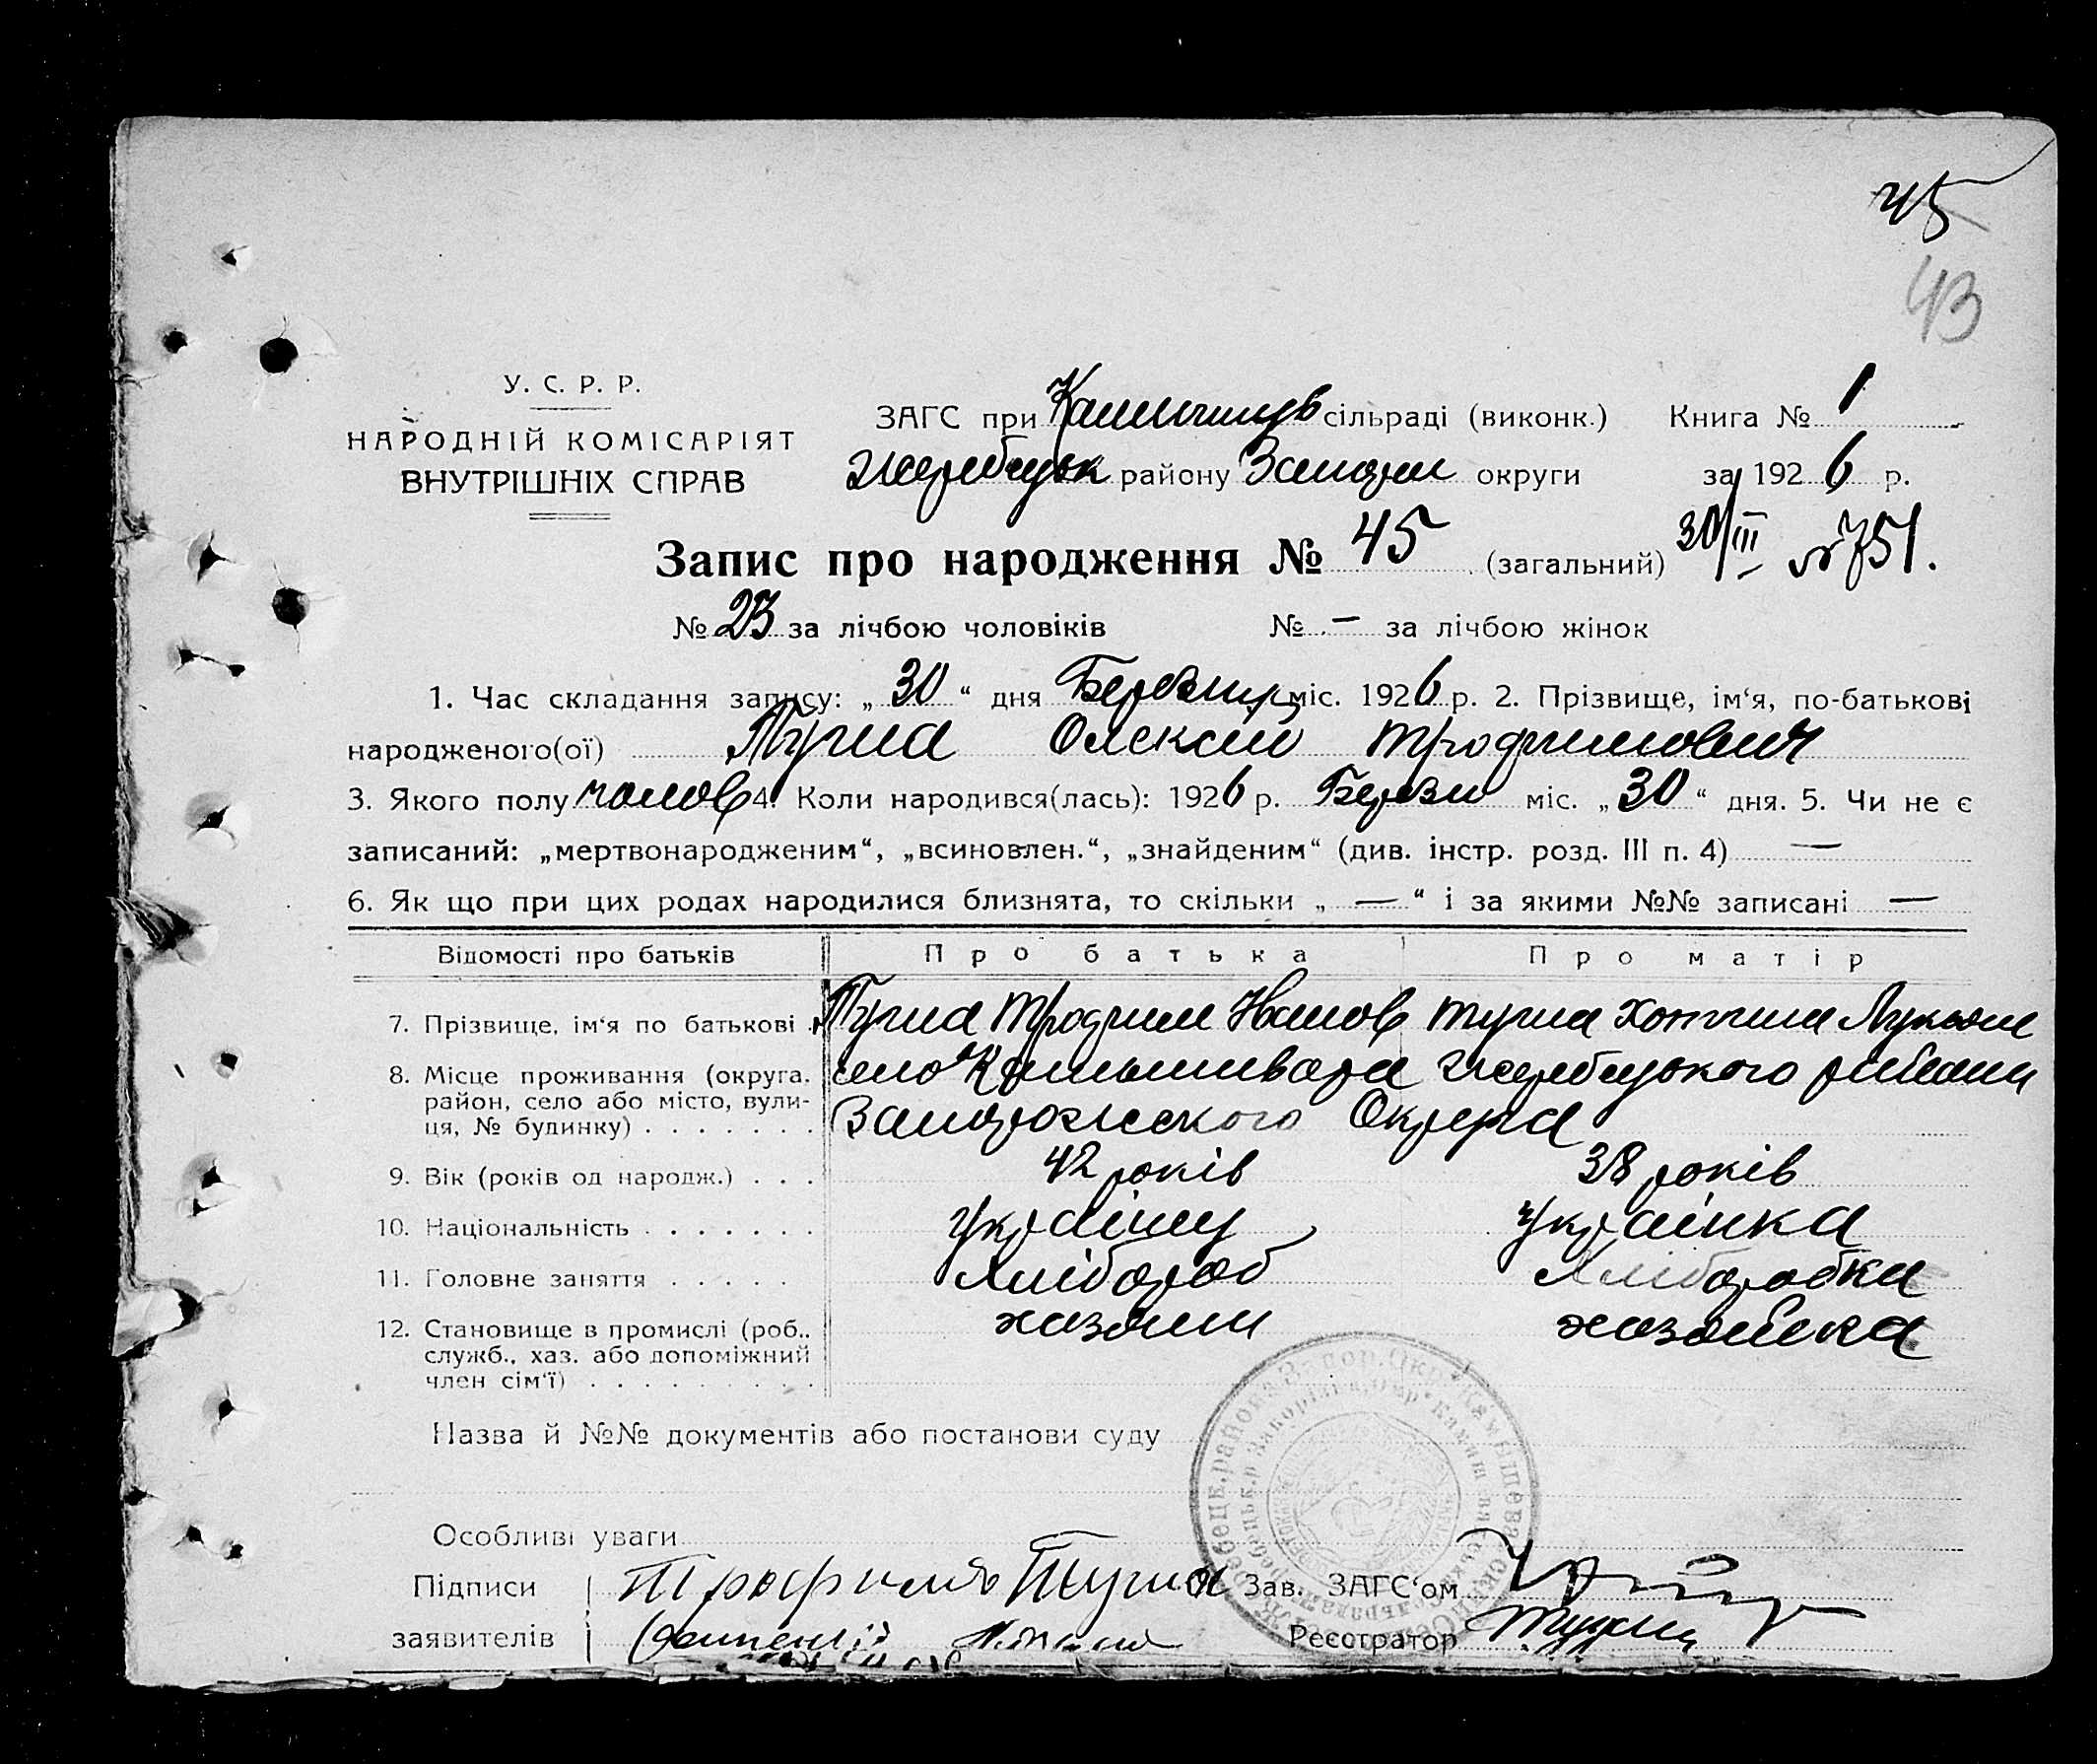 45
43
У. С. Р. Р.
НАРОДНІЙ КОМІСАРІЯТ
ВНУТРІШНІХ СПРАВ
ЗАГС при Камишув сільраді (виконк.) Книга № 1
Жеребцьк району Запорж округи за 1926 р.
Запис про народження № 45 (загальний) 30/III №751.
№ 23 за лічбою чоловіків № — за лічбою жінок
1. Час складання запису: „ 30 “ дня Березня міс. 1926 р. 2. Прізвище, ім‘я, по-батькові
народженого(ої) Олексій Трофимович
3. Якого полу чолов 4. Коли народився(лась): 1926 р. Берзн міс. „ 30 “ дня. 5. Чи не є
записаний: „мертвонародженим“, „всиновлен.“, „знайденим“ (див. інстр. розд. III п. 4) —
6. Як що при цих родах народилися близнята, то скільки „ — “ і за якими №№ записані —
Відомості про батьків Про батька Про матір
7. Прізвище, ім‘я по батькові Трофим Иванов
8. Місце проживання (округа, село Камышивара Жеребцького
район, село або місто, вули-
ця, № будинку) Запорожського Округа
9. Вік (років од народж.) 42 років 38 років
10. Національність українц українка
11. Головне заняття хлібороб Хліборобка
12. Становище в промислі (роб., хазяин хазяйка
служб., хаз. або допоміжний
член сім‘ї)
Назва й №№ документів або постанови суду
Особливі уваги
Підписи Трофимъ Зав. ЗАГС‘ом
заявителів Реєстратор